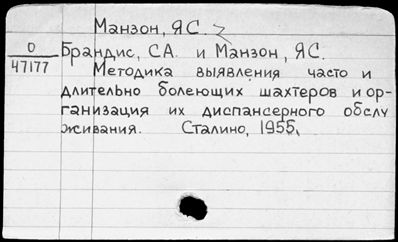 Манзон, Я.С.
0
47177
Брандис, С.А. и Манзон, Я.С.
Методика выявления часто и
длительно болеющих шахтеров и ор-
ганизация их диспансерного обслу
живания. Сталино, 1955.